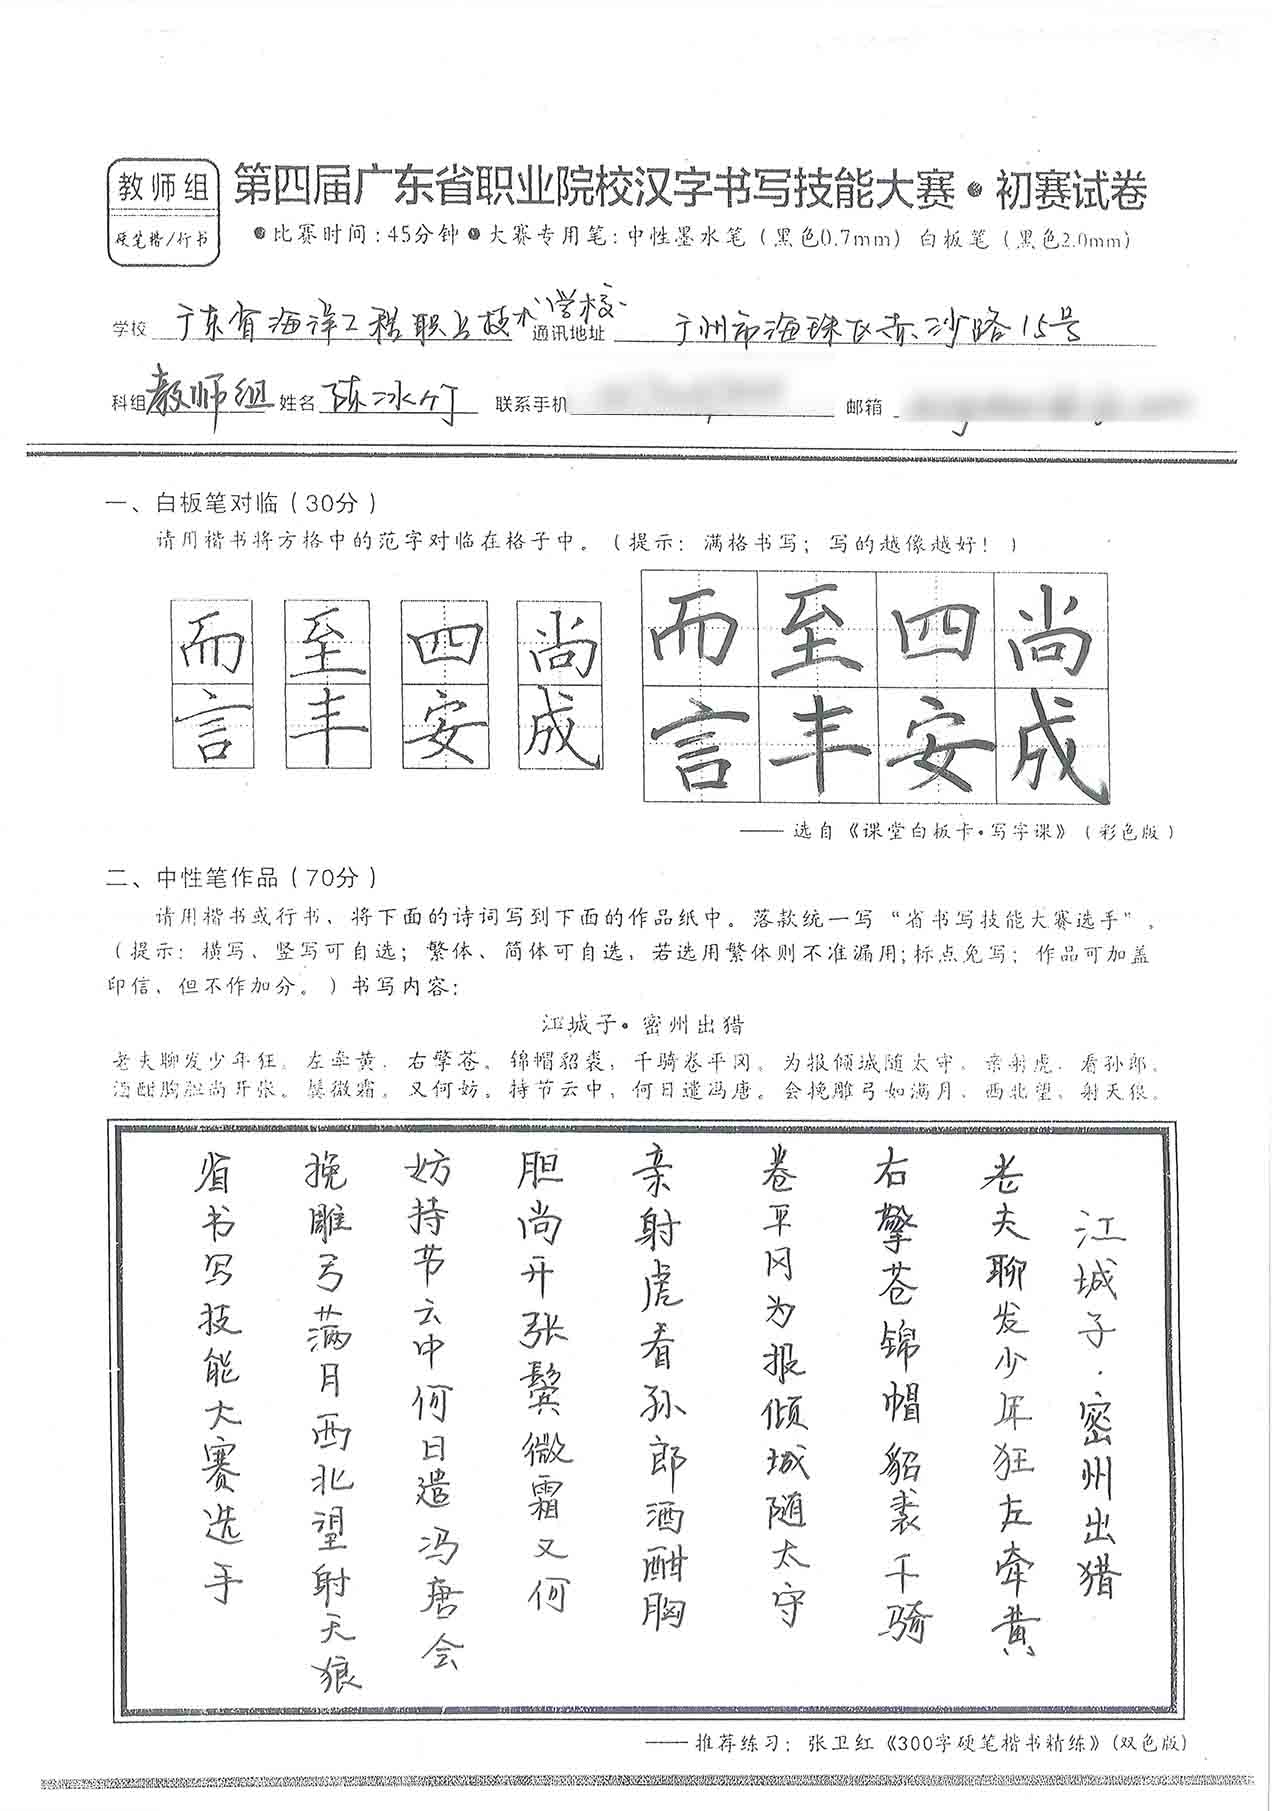 教师组
硬笔楷/行书
第四届广东省职业院校汉字书写技能大赛·初赛试卷
●比赛时间:45分钟●大赛专用笔:中性墨水笔(黑色0.7mm) 白板笔(黑色2.0mm)
学校 广东省海洋工程职业技术学校 通讯地址 广州市海珠区赤沙路15号
科组 教师组 姓名 陈冰竹 联系手机 邮箱
一、白板笔对临(30分)
请用楷书将方格中的范字对临在格子中。(提示:满格书写;写的越像越好!)
而 至 四 尚 而 至 四 尚
言 丰 安 成 言 丰 安 成
——选自《课堂白板卡·写字课》(彩色版)
二、中性笔作品(70分)
请用楷书或行书、将下面的诗词写到下面的作品纸中。落款统一写“省书写技能大赛选手”,
(提示:横写、竖写可自选;繁体、简体可自选,若选用繁体则不准漏用;标点免写;作品可加盖
印信,但不作加分。)书写内容:
江城子·密州出猎
老夫聊发少年狂。左牵黄,右擎苍。锦帽貂裘,千骑卷平冈。为报倾城随太守,亲射虎,看孙郎。
酒酣胸胆尚开张。鬓微霜,又何妨。持节云中,何日遣冯唐。会挽雕弓如满月,西北望,射天狼。
江城子·密州出猎
老夫聊发少年狂左牵黄
右擎苍锦帽貂裘千骑
卷平冈为报倾城随太守
亲射虎看孙郎酒酣胸
胆尚开张鬓微霜又何
妨持节云中何日遣冯唐会
挽雕弓满月西北望射天狼
省书写技能大赛选手
——推荐练习:张卫红《300字硬笔楷书精练》(双色版)